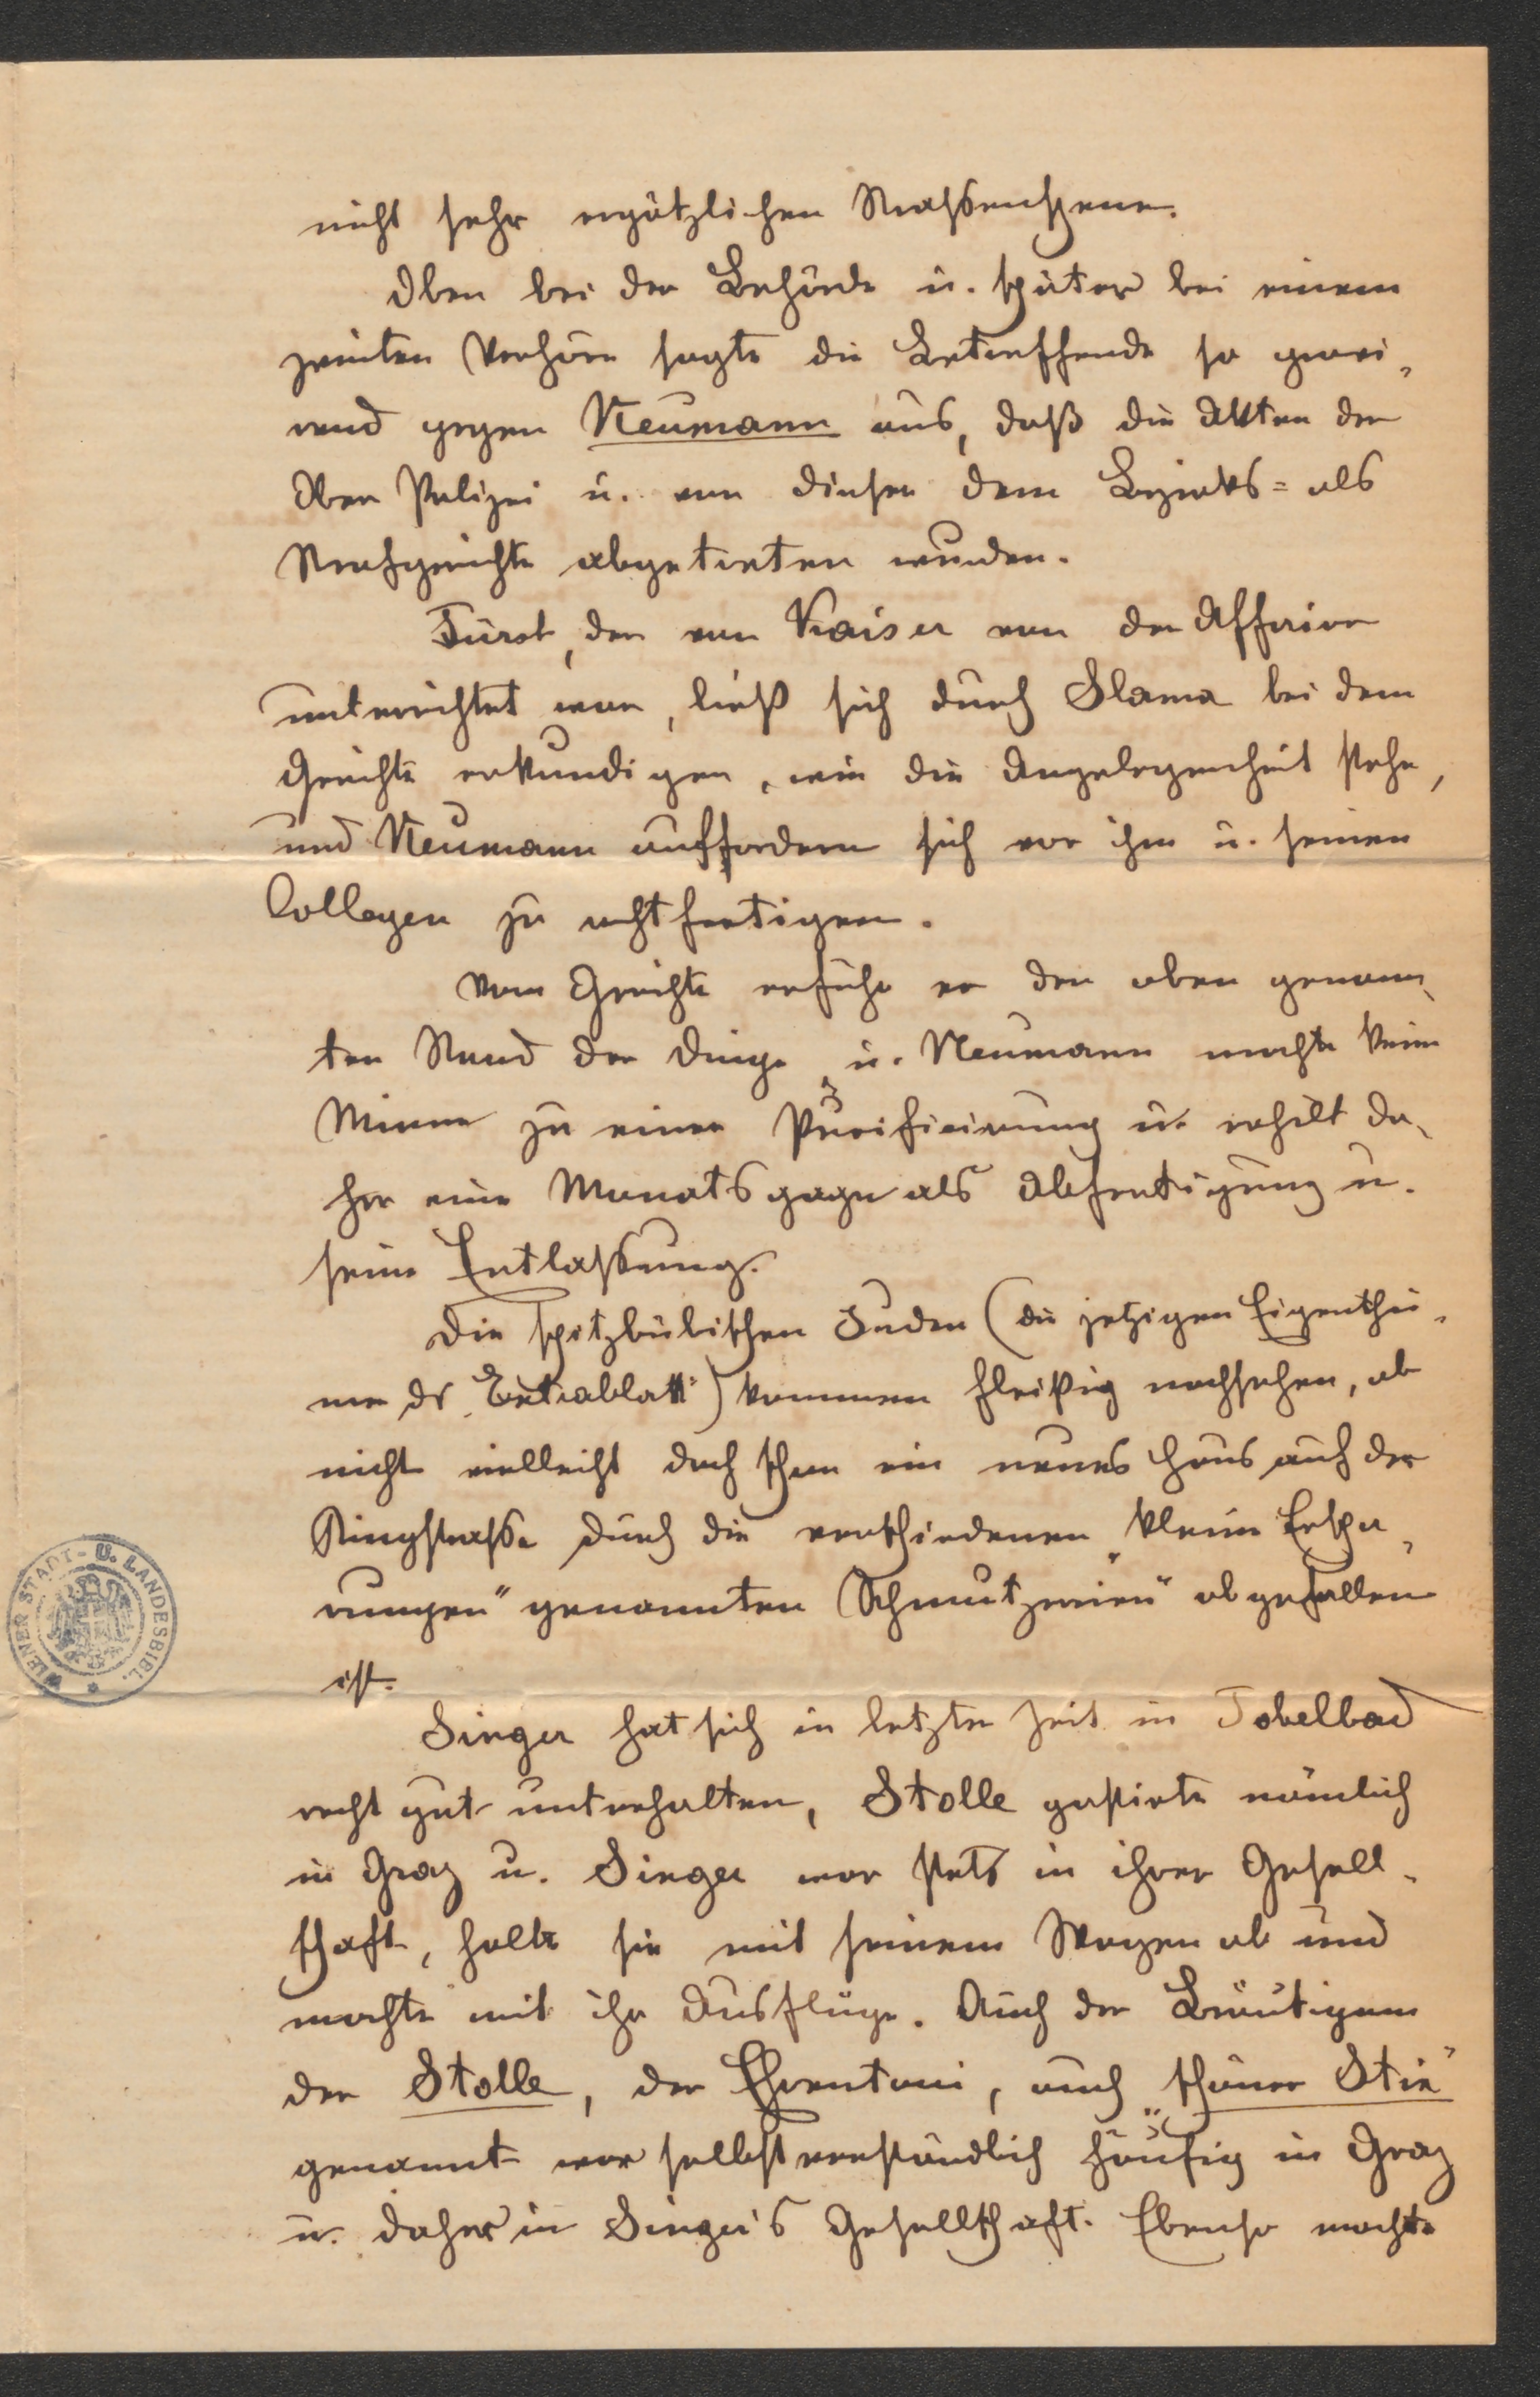 nicht sehr ergötzlichen Straßenszene.
Oben bei der Behörde u. später bei einem
zweiten Verhöre sagte die Betreffende so gravi-
rend gegen Neumann aus, daß die Akten der
Ober Polizei u. von dieser dem Bezirks= als
Strafgerichte abgetreten wurden.
Fürst, der von Kaiser von der Affaire
unterrichtet war, ließ sich durch Slama bei dem
Gerichte erkundigen, wie die Angelegenheit stehe,
und Neumann auffordern sich vor ihm u. seinen
Collegen zu rechtfertigen.
Vom Gerichte erfuhr er den oben genann-
ten Stand der Dinge, u. Neumann machte keine
Miene zu einer Purificirung u. erhilt da-
her eine Monatsgage als Abfertigung u.
seine Entlassung.
Die spitzbübischen Juden (die jetzigen Eigenthü-
mer ds „Extrablatt") kommen fleißig nachsehen, ob
nicht vielleicht doch schon ein neues Haus auf der
Ringstrasse durch die verschiedenen „kleine Erspa-
rungen" genannten Schmutzereien" abgefallen
ist.
Singer hat sich in letzter Zeit in Tobelbad
recht gut unterhalten, Stolle gastirte nämlich
in Graz u. Singer war stets in ihrer Gesell-
schaft, holte sie mit seinem Wagen ab und
machte mit ihr Ausflüge. Auch der Bräutigam
der Stolle, der, auch „schöner Stie"
genannt war selbstverständlich häufig in Graz
u. daher in Singer's Gesellschaft. Ebenso machte
WIENER STADT- U. LANDESBIBL.